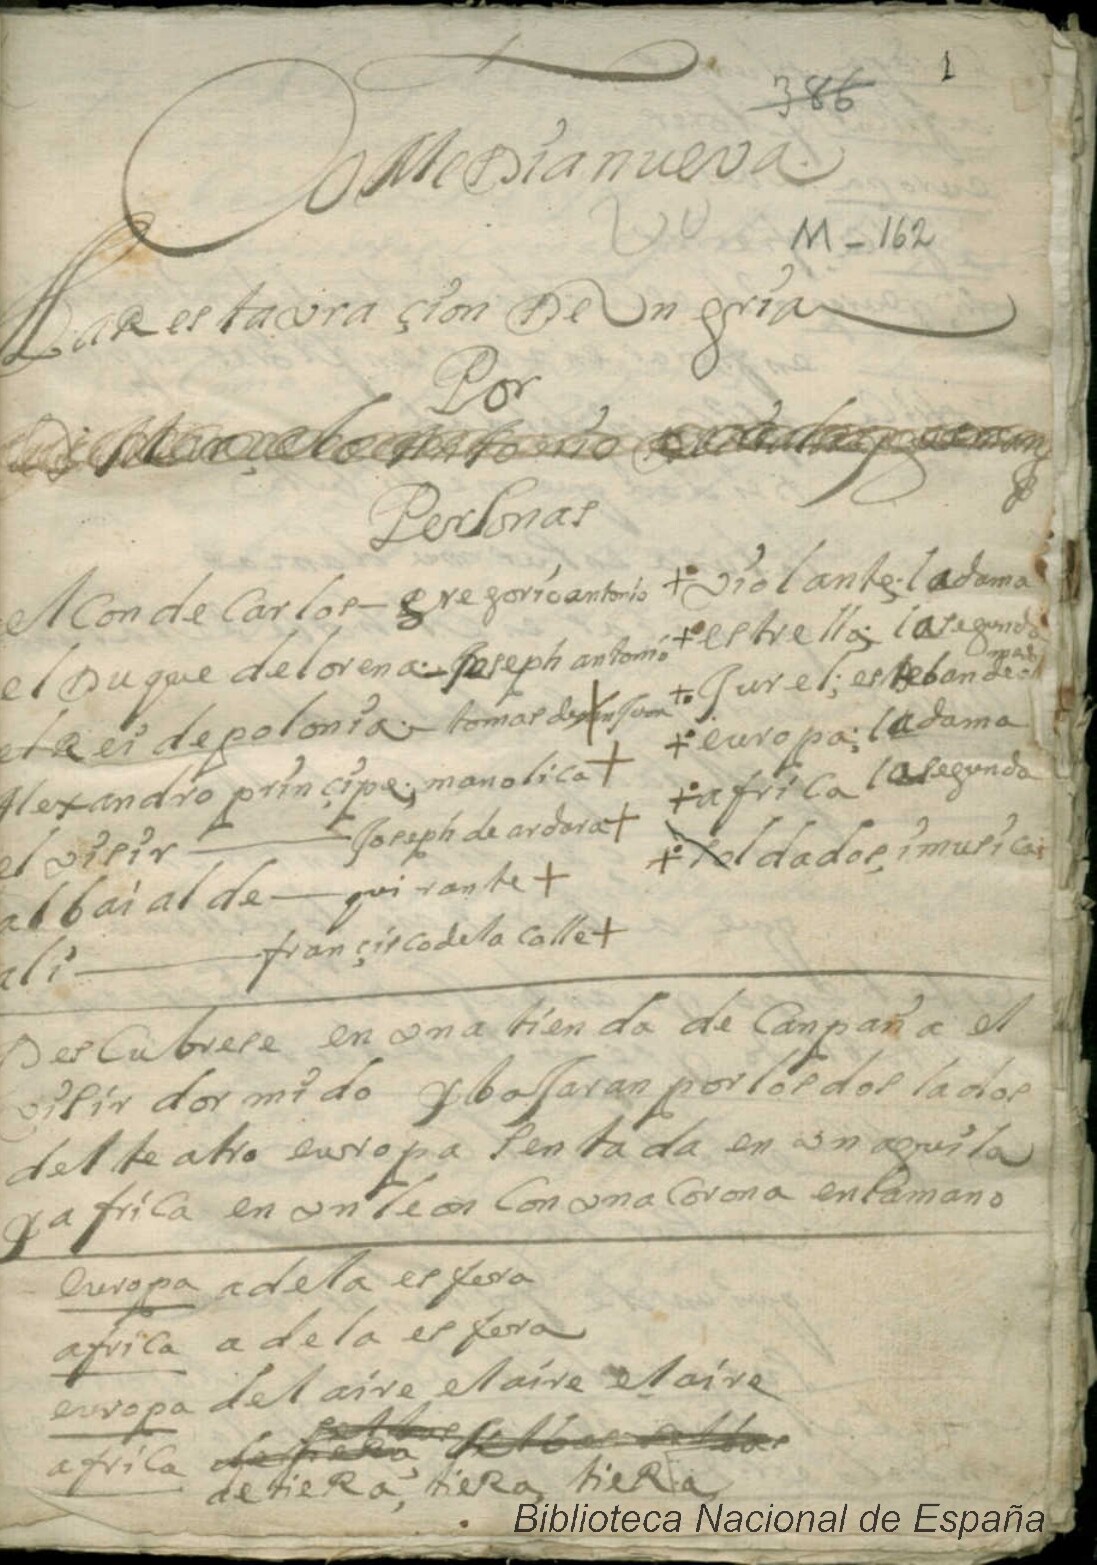 1
386
Comedia nueva.
M-162
La Restauraçion De Ungria
Por
Personas
el Conde Carlos - gregorio antonio
el Duque de lorena - Joseph antonio
el Rei de polonia - tomas de
Alexandro prinçipe; manolica +
el visir — Joseph de ardara +
albaialde — quirante +
ali — françisco de la calle +
+ violante; la dama
+ estrella; la segunda
+ Jurel; esteban de
+ europa; la dama
+ africa la segunda
+ soldados, i musica
DesCubrese en una tienda de Canpaña el
visir dormido y baJaran por los dos lados
del teatro europa sentada en un aguila
y africa en un leon Con una Corona en la mano
europa a de la esfera
africa a de la esfera
europa del aire el aire el aire
africa
de tieRa, tieRa, tieRa
Biblioteca Nacional de España